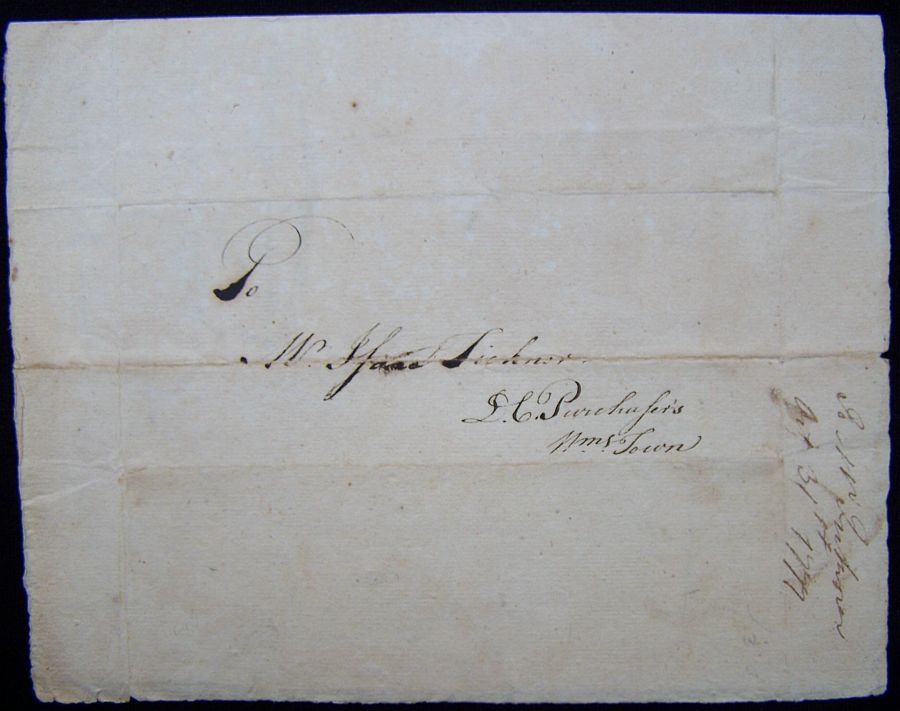 To
Mr. Isaac Tichnor.
D. C. Purchasers
Wms. Town
31st 1777